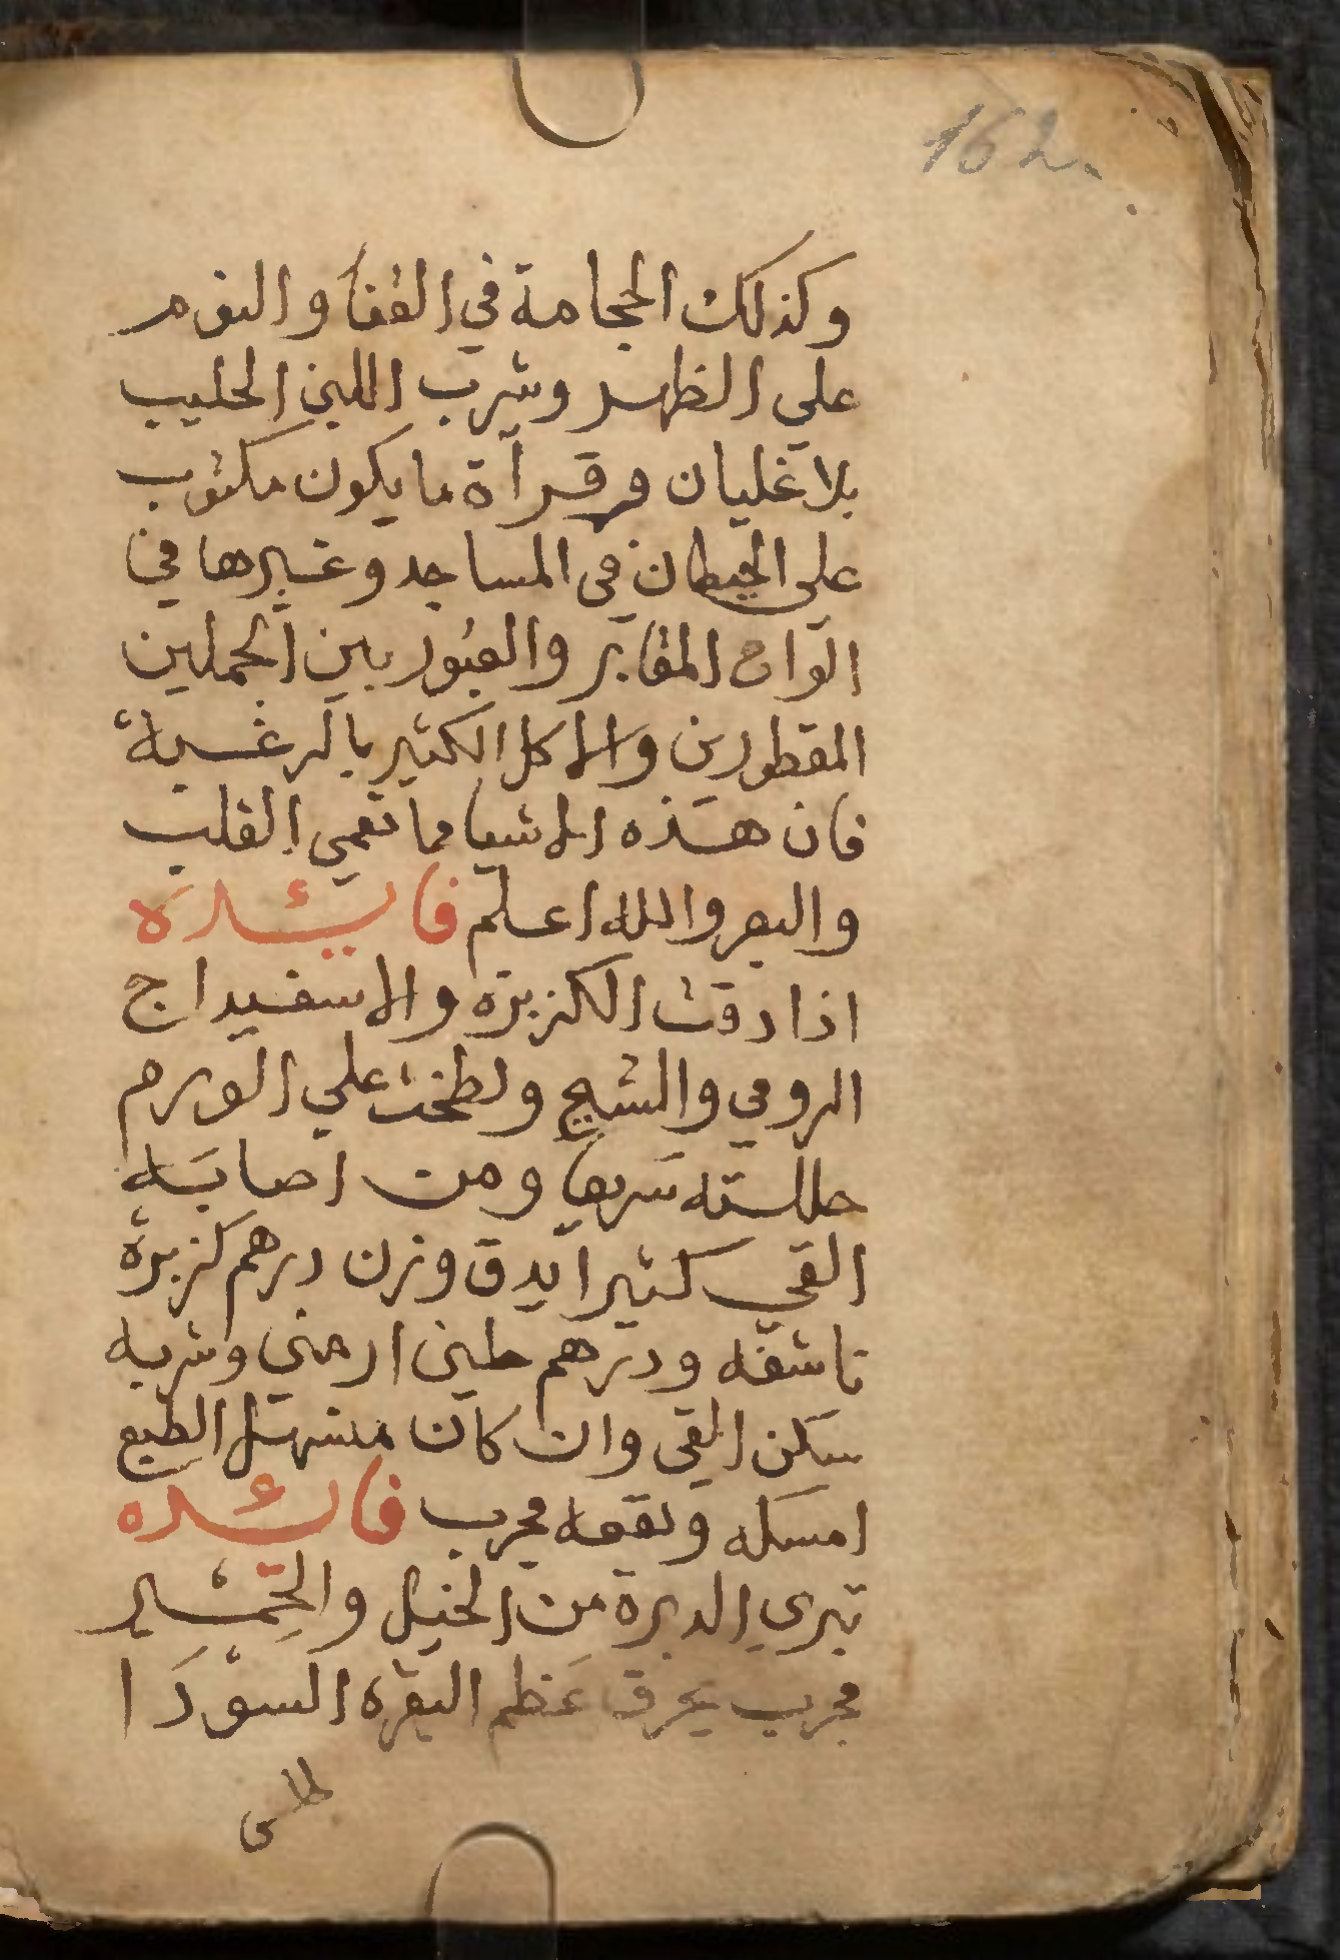 162
وكذلك الحجامة في القفا والنوم
علي الظهر وشرب اللبن الحليب
بلا غليان وقرآة ما يكون مكتوب
علي الحيطان في المساجد وغيرها في
الواح المقابر والقبور بين الجملين
المقطورين والاكل الكثير بالرغبة
فان هذه الاشيا مما تعمي القلب
والبصر والله اعلم فائده
اذا دقت الكزبره والاسفيداج
الرومي والشيح ولطخت علي الورم
حللته سريعا ومن اصابه
القي كثيرا يدق وزن درهم كزبرة
ناشفه ودرهم طين ارمني وشربه
سكن القي وان كان منسهل الطبع
امسكه ونفعه مجرب فائده
تبري الدبرة من الخيل والحمير
مجرب يحرق عظم البقره السودا